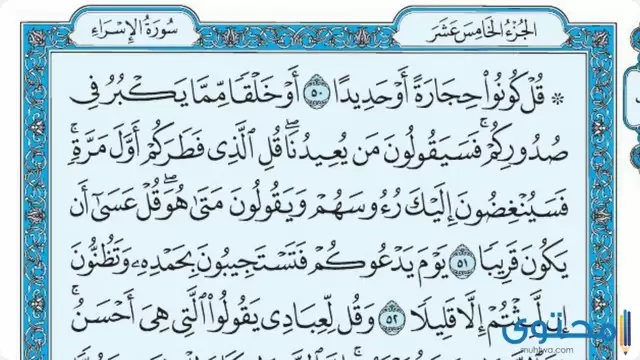 الجُزْءُ الخَامِسَ عَشَرَ
سُورَةُ الإِسْرَاءِ
۞ قُلْ كُونُوا۟ حِجَارَةً أَوْ حَدِيدًا ۝٥٠ أَوْ خَلْقًا مِّمَّا يَكْبُرُ فِى
صُدُورِكُمْ ۚ فَسَيَقُولُونَ مَن يُعِيدُنَا ۖ قُلِ ٱلَّذِى فَطَرَكُمْ أَوَّلَ مَرَّةٍ ۚ
فَسَيُنْغِضُونَ إِلَيْكَ رُءُوسَهُمْ وَيَقُولُونَ مَتَىٰ هُوَ ۖ قُلْ عَسَىٰٓ أَن
يَكُونَ قَرِيبًا ۝٥١ يَوْمَ يَدْعُوكُمْ فَتَسْتَجِيبُونَ بِحَمْدِهِۦ وَتَظُنُّونَ
إِن لَّبِثْتُمْ إِلَّا قَلِيلًا ۝٥٢ وَقُل لِّعِبَادِى يَقُولُوا۟ ٱلَّتِى هِىَ أَحْسَنُ ۚ
محتوى
muhtwa.com